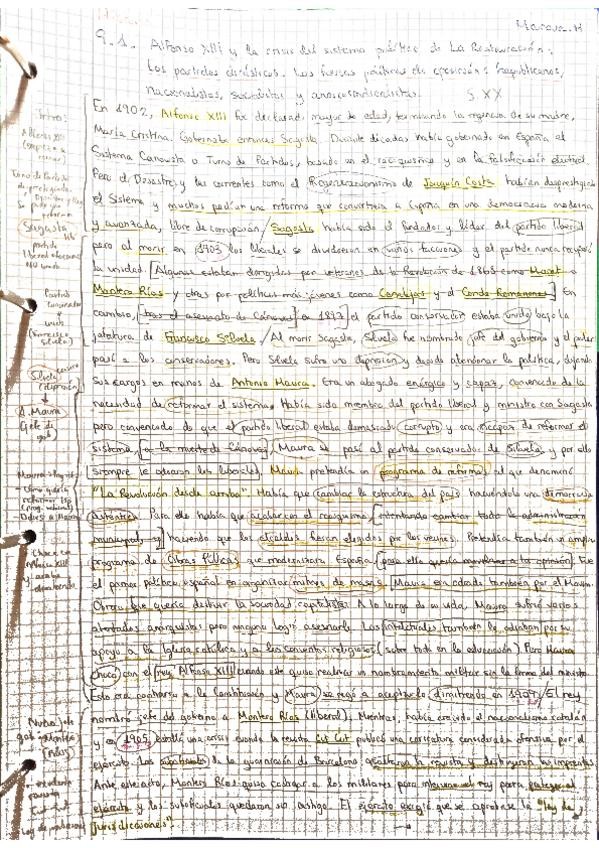 9.1. Alfonso XIII y la crisis del sistema político de La Restauración:
Los partidos dinásticos. Las fuerzas políticas de oposición: republicanos,
nacionalistas, socialistas y anarcosindicalistas. S.XX
En 1902, Alfonso XIII fue declarado mayor de edad, terminando la regencia de su madre,
María Cristina. Gobernaba entonces Sagasta. Durante décadas había gobernado en España el
Sistema Canovista o Turno de Partidos, basado en el caciquismo y en la falsificación electoral.
Pero el Desastre y las corrientes como el Regeneracionismo de Joaquín Costa habían desprestigiado
el Sistema y muchos pedían una reforma que convirtiera a España en una democracia moderna
y avanzada, libre de corrupción / Sagasta había sido el fundador y líder del partido liberal
pero al morir en 1903 los liberales se dividieron en varias facciones y el partido nunca recuperó
la unidad. [Algunas estaban dirigidas por veteranos de la Revolución de 1868 como Moret o
Montero Ríos y otras por políticos más jóvenes como Canalejas y el Conde Romanones] En
cambio, [tras el asesinato de Cánovas a 1897] el partido conservador estaba unido bajo la
jefatura de Francisco Silvela / Al morir Sagasta, Silvela fue nombrado jefe del gobierno y el poder
pasó a los conservadores. Pero Silvela sufrió una depresión y decidió abandonar la política, dejando
sus cargos en manos de Antonio Maura. Era un abogado enérgico y sagaz, convencido de la
necesidad de reformar el sistema. Había sido miembro del partido liberal y ministro con Sagasta
pero convencido de que el partido liberal estaba demasiado corrupto y era incapaz de reformar el
sistema, [a la muerte de Cánovas], Maura se pasó al partido conservador de Silvela y por ello
siempre le odiaron los liberales. Maura pretendía un programa de reformas al que denominó
"La Revolución desde arriba". Había que cambiar la estructura del país haciéndola una democracia
auténtica. Para ello había que acabar con el caciquismo [intentando cambiar toda la administración
municipal y] haciendo que los alcaldes fueran elegidos por los vecinos. Pretendía también un amplio
programa de Obras Públicas que modernizara España [para ello quería movilizar a la opinión] Fue
el primer político español en organizar mítines de masas. Maura era odiado también por el Movim.
Obrero que quería destruir la sociedad capitalista. A lo largo de su vida, Maura sufrió varios
atentados anarquistas pero ninguno logró asesinarle. Los intelectuales también le odiaban por su
apoyo a la Iglesia católica y a los conventos religiosos (sobre todo en la educación) Pero Maura
chocó con el rey Alfonso XIII cuando este quiso realizar un nombramiento militar sin la firma del ministro.
Esto era contrario a la Constitución y Maura se negó a aceptarlo dimitiendo en 1904 / El rey
nombró jefe del gobierno a Montero Ríos (liberal). Mientras, había crecido el nacionalismo catalán
y en 1905 estalló una crisis cuando la revista Cut Cut publicó una caricatura considerada ofensiva por el
ejército. Los suboficiales de la guarnición de Barcelona asaltaron la revista y destruyeron las imprentas
Ante este acto, Montero Ríos quiso castigar a los militares pero intervino el rey para proteger al
ejército y los suboficiales quedaron sin castigo. El ejército exigió que se aprobase la "Ley de
Jurisdicciones".
Intro:
Alfonso XIII
Sagasta
partido
liberal
NO unido
Partido
conservador
unido
(Francisco
Silvela)
Silvela
A. Maura
(jefe de
gob)
Choca con
Alfonso XIII
y acaba
Nuevo jefe